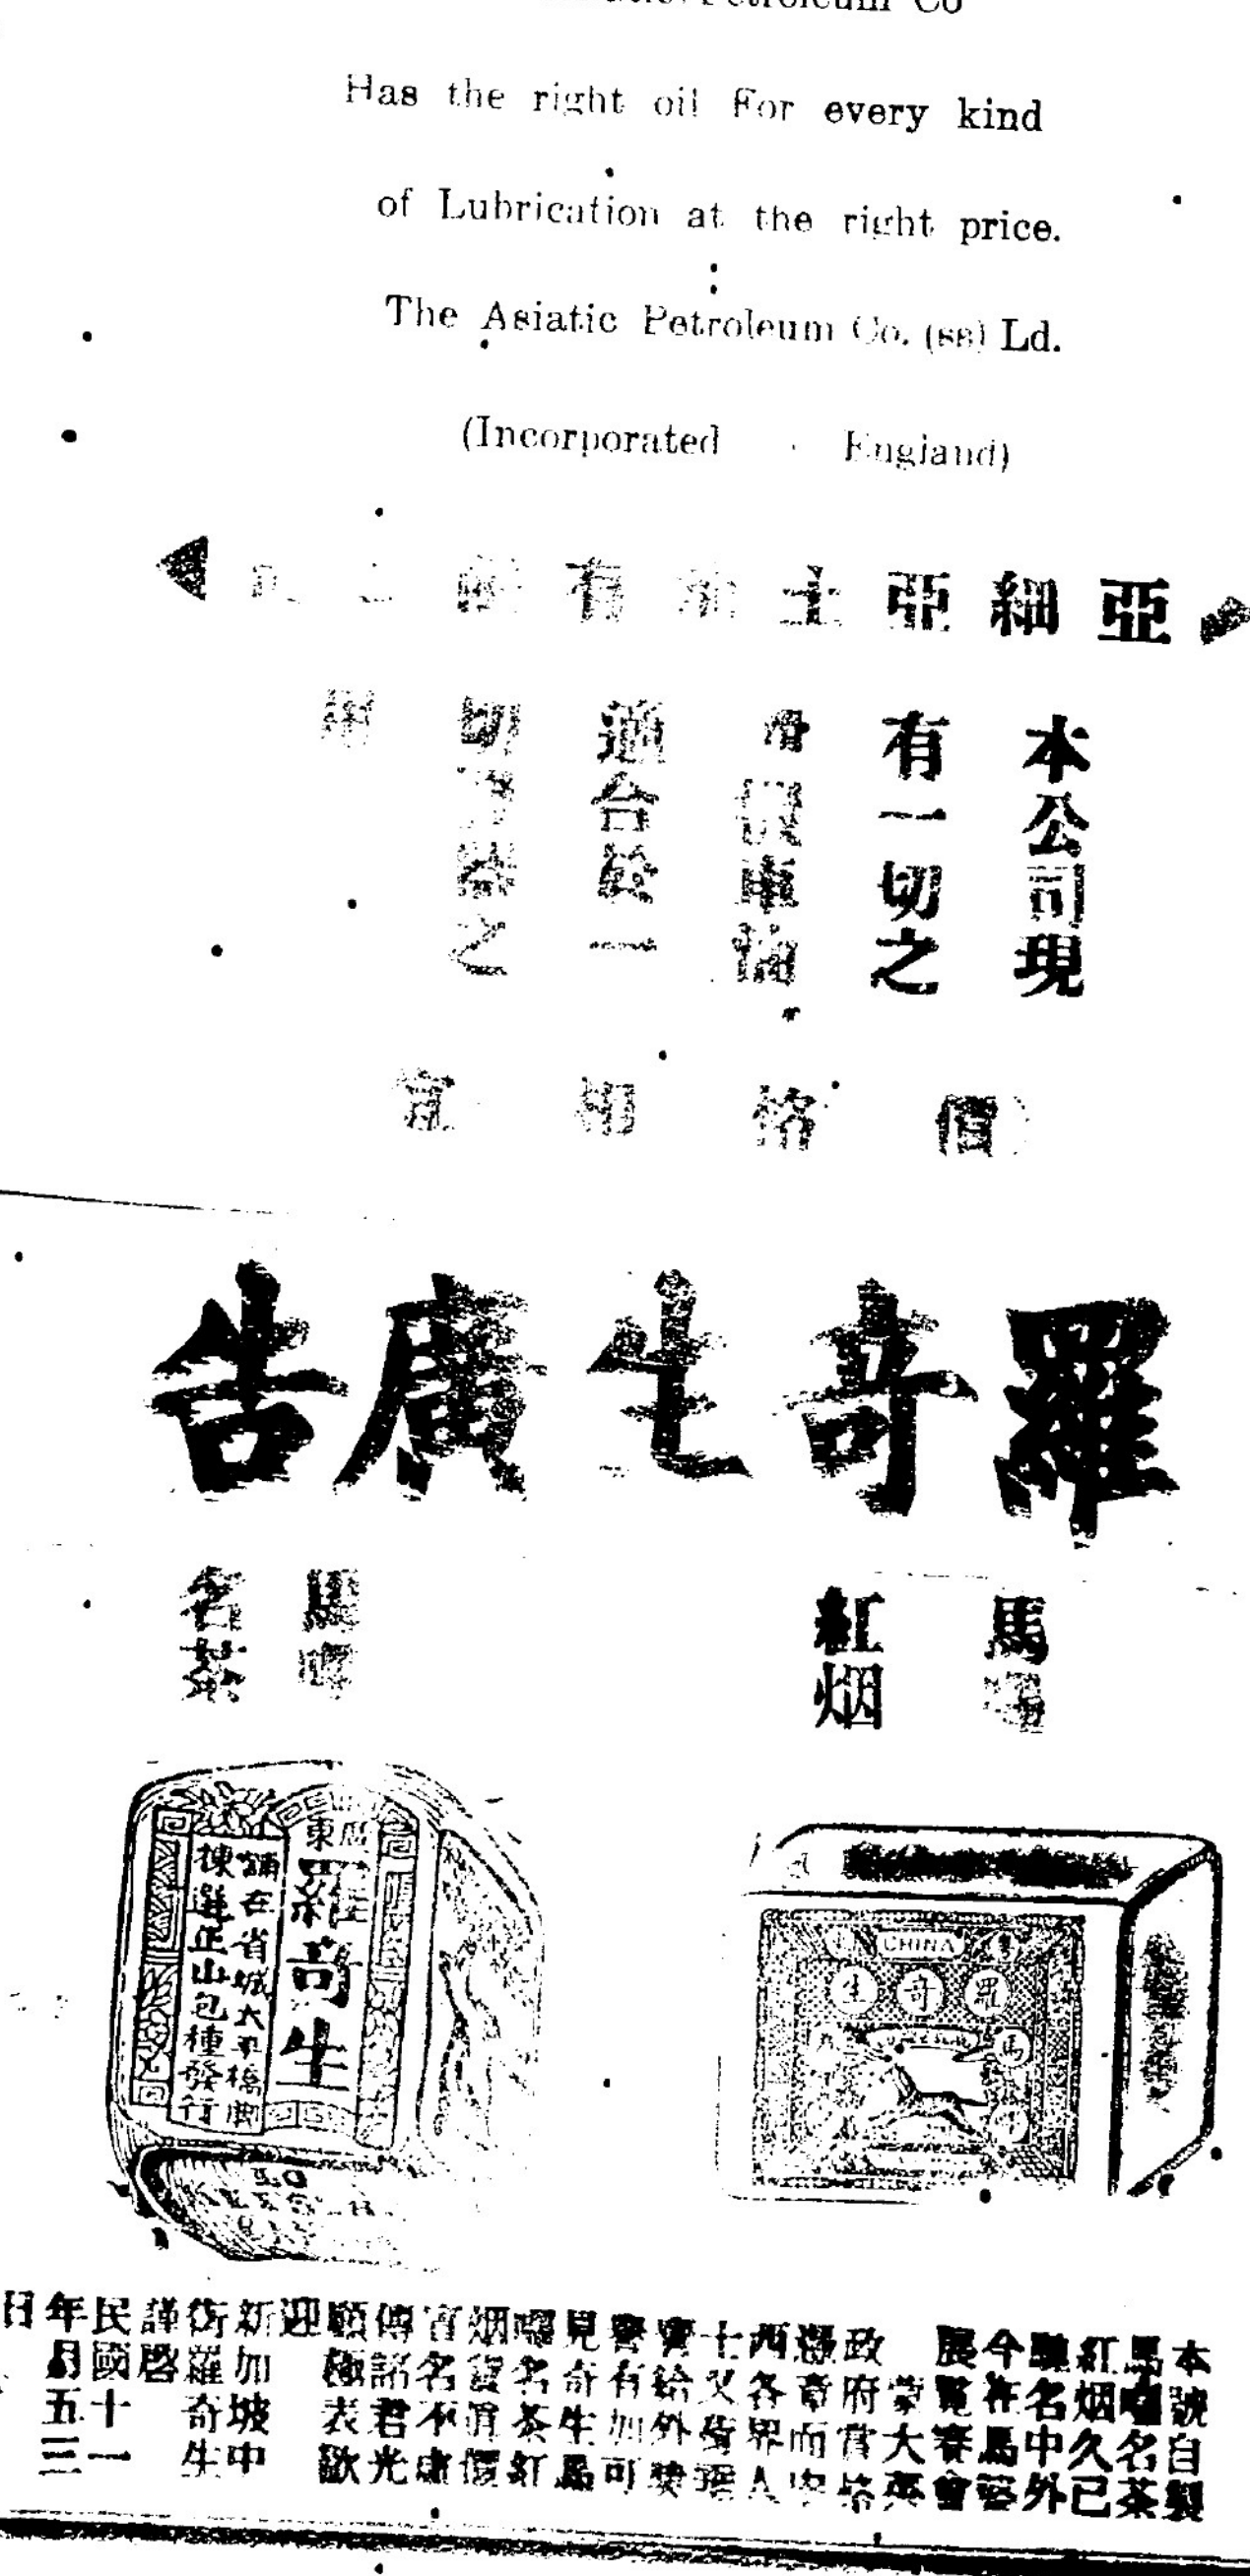 Petroleum Co
Has the right oil For every kind
of Lubrication at the right price.
The Asiatic Petroleum Co. (ss) Ld.
(Incorporated England)
亞細亞土油有限
本公司現
有一切之
滑機車油
適合於一
切機器之
用
價格相宜
羅奇生廣告
馬嘜
紅烟
馬嘜
名茶
CHINA
羅奇生
馬
廣東
羅奇生
舖在省城太平橋
揀選正山包種發行
本號自製
馬嘜名茶
紅烟久已
馳名中外
今在馬
展覽賽會
蒙大英
政府賞給
憑章而
西各界人
士又
給外獎
有加可
見奇生馬
嘜名茶紅
烟貨真價
名不虛
傳諸君光
顧極表歡
迎
新加坡中
街羅奇生
謹啓
民國十一
年五月三
日